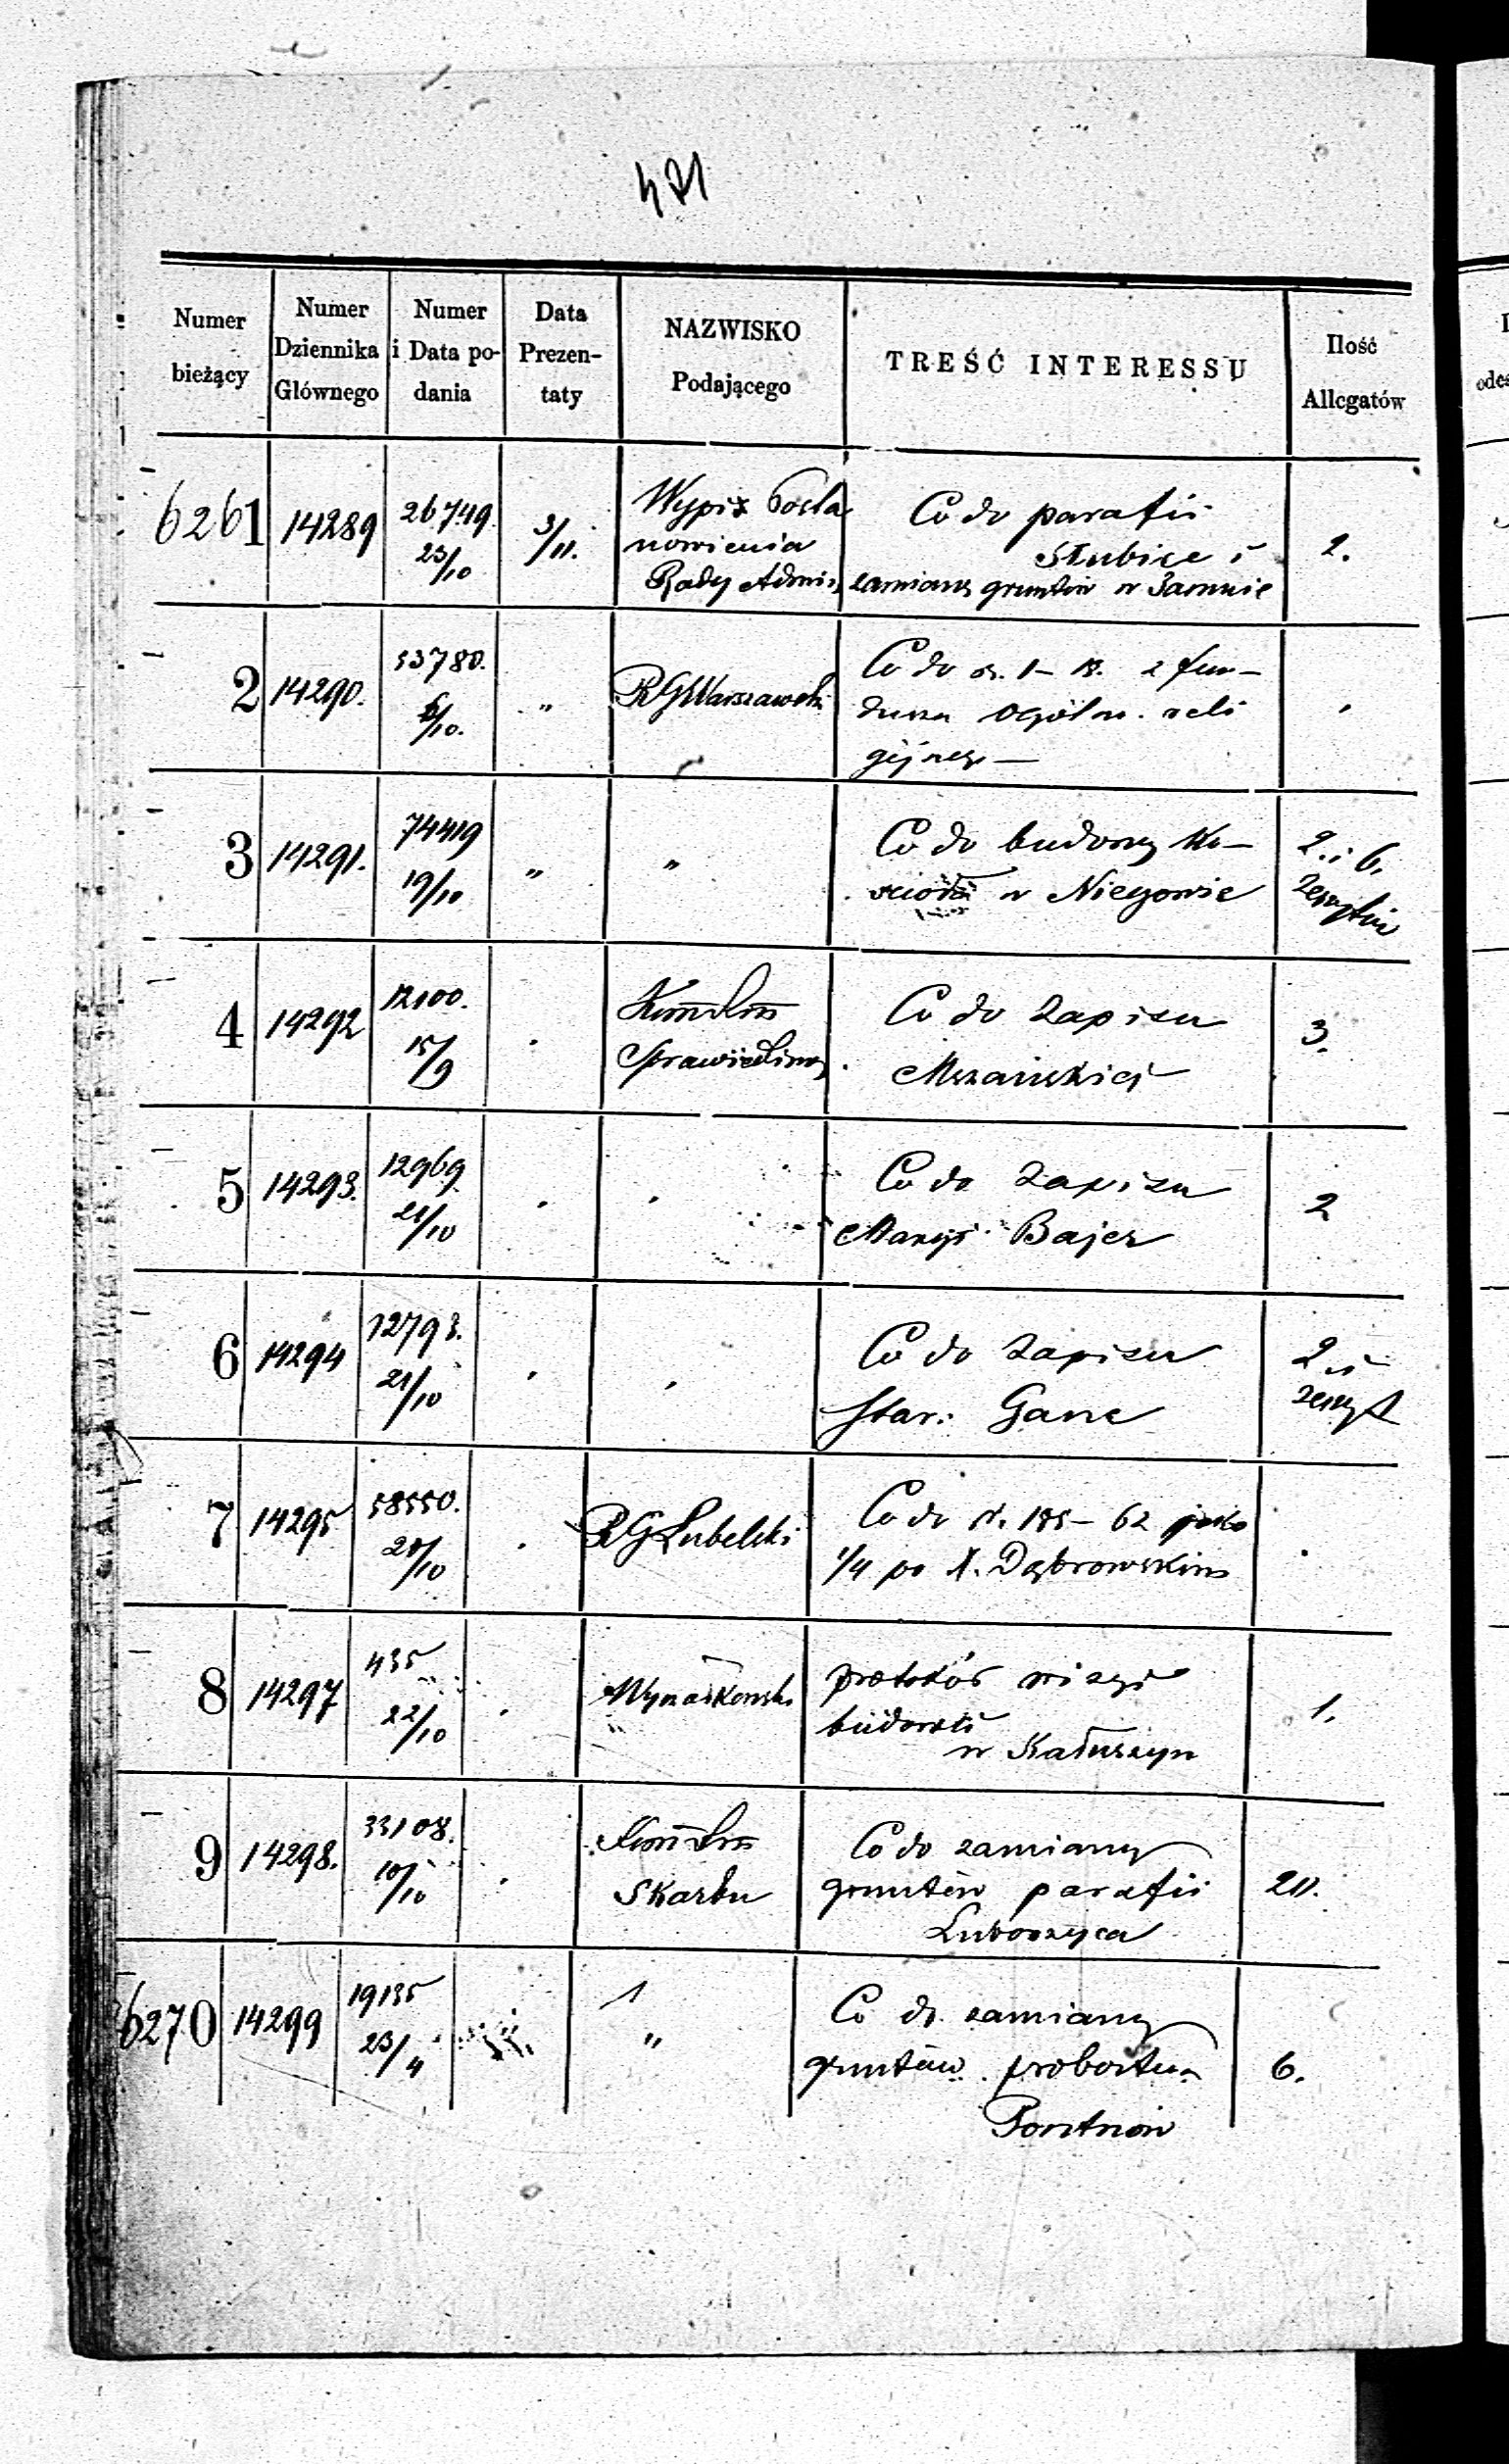 421
Numer bieżący | Numer Dziennika Głównego | Numer i Data podania | Data Prezentaty | NAZWISKO Podającego | TREŚĆ INTERESSU | Ilość Allegatów
6261 | 14289 | 26749. 23/10 | 3/11. | Wypis Posta
nowienia
Rady Admin | Co do parafii
Słubice i
zamiany gruntów w | 2.
2 | 14290. | 53780. 6/10. | „ | RGWarszawski | Co do rs. 1 – 18. z fun–
duszu Ogóln. reli
gijnego –
3 | 14291. | 74419 19/10 | „ | „ | Co do budowy ko–
scioła w Niegowie | 2. i 6.
zeszytów
4 | 14292 | 12100. 15/9 | . | Sprawiedliwoś. | Co do zapisu | 3.
5 | 14293. | 12969. 21/10 | . | . | Co do zapisu
Maryi Bajer | 2
6 | 14294 | 12793. 21/10 | . | . | Co do zapisu
Star: Gane | 2 i
zeszyt
7 | 14295 | 58550. 20/10 | . | RGLubelski | Co do rs. 185 – 62 jako
1/4 po X. Dąbrowskim | .
8 | 14297 | 435 22/10 | . | protokół wizyi
budowli
w Kałuszyn | 1.
9 | 14298. | 33108. 10/10 | . | Skarbu | Co do zamiany
gruntów parafii
Luborzyca | 20.
6270 | 14299 | 19135 23/4 | „ | Co do zamiany
gruntów probostwa | 6.